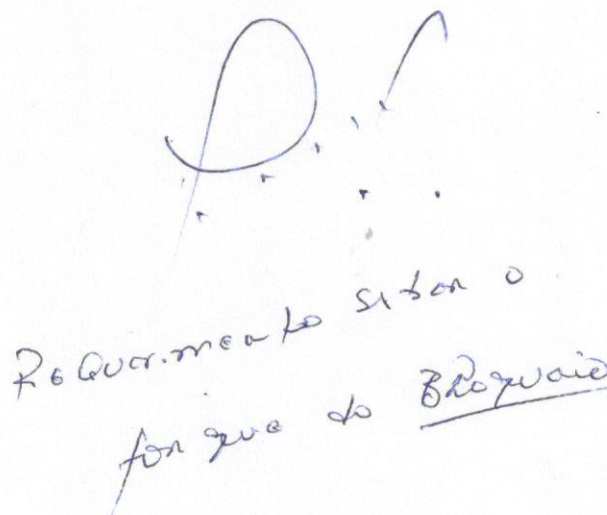 Requerimento saber o
porque do Bloqueio